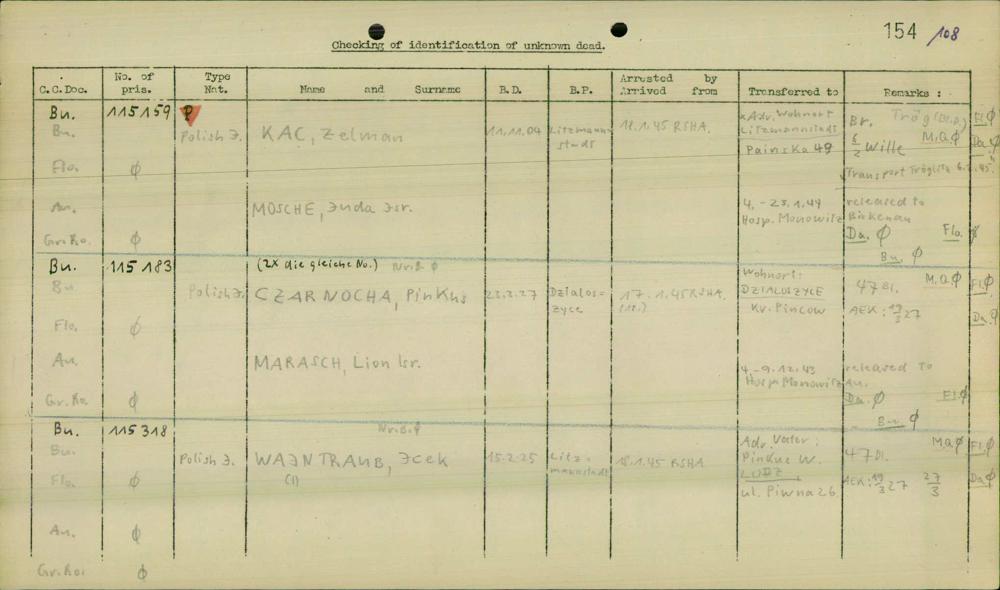 154 108
Checking of identification of unknown dead.
C.C.Doc. No. of pris. Type Nat. Name and Surname B.D. B.P. Arrested by Arrived from Transferred to Remarks :
Bu. 115159 P
Bu. Polish J. KAC, Zelman 11.11.04 Litzmannstadt 18.1.45 RSHA.
Adr. Wohnort
Litzmannstadt
Painska 49
Br. Trög
6/2 Wille M.Q. ∅
Fl. ∅
Da. ∅
Transport Tröglitz 6.2.45.
Flo. ∅
Au. MOSCHE, Juda Isr.
4. - 23.1.44
Hosp. Monowitz
released to
Birkenau
Da. ∅ Flo. ∅
Bu. ∅
Gr.Ro. ∅
Bu. 115183 (2x die gleiche No.) Nr.B. ∅
Bu. Polish J. CZARNOCHA, Pinkus 22.2.27 Dzialoszyce 17.1.45 RSHA.
Wohnort:
DZIALOSZYCE
Kr. Pincow
47 Bl. M.Q. ∅ Fl. ∅
AEK: 19/3 27 Da. ∅
Flo. ∅
Au. MARASCH, Lion Isr.
4. - 9.12.43
Hosp. Monowitz
released to
Au.
Da. ∅ Fl. ∅
Bu. ∅
Gr.Ro. ∅
Bu. 115318 Nr.B. ∅
Bu. Polish J. WAJNTRAUB, Icek 15.2.25 Litzmannstadt 18.1.45 RSHA
(1)
Adr. Vater:
Pinkus W.
LODZ
ul. Piwna 26.
47 Bl. M.Q. ∅ Fl. ∅
AEK: 19/3 27 27/3 Da. ∅
Flo. ∅
Au. ∅
Gr.Ro. ∅